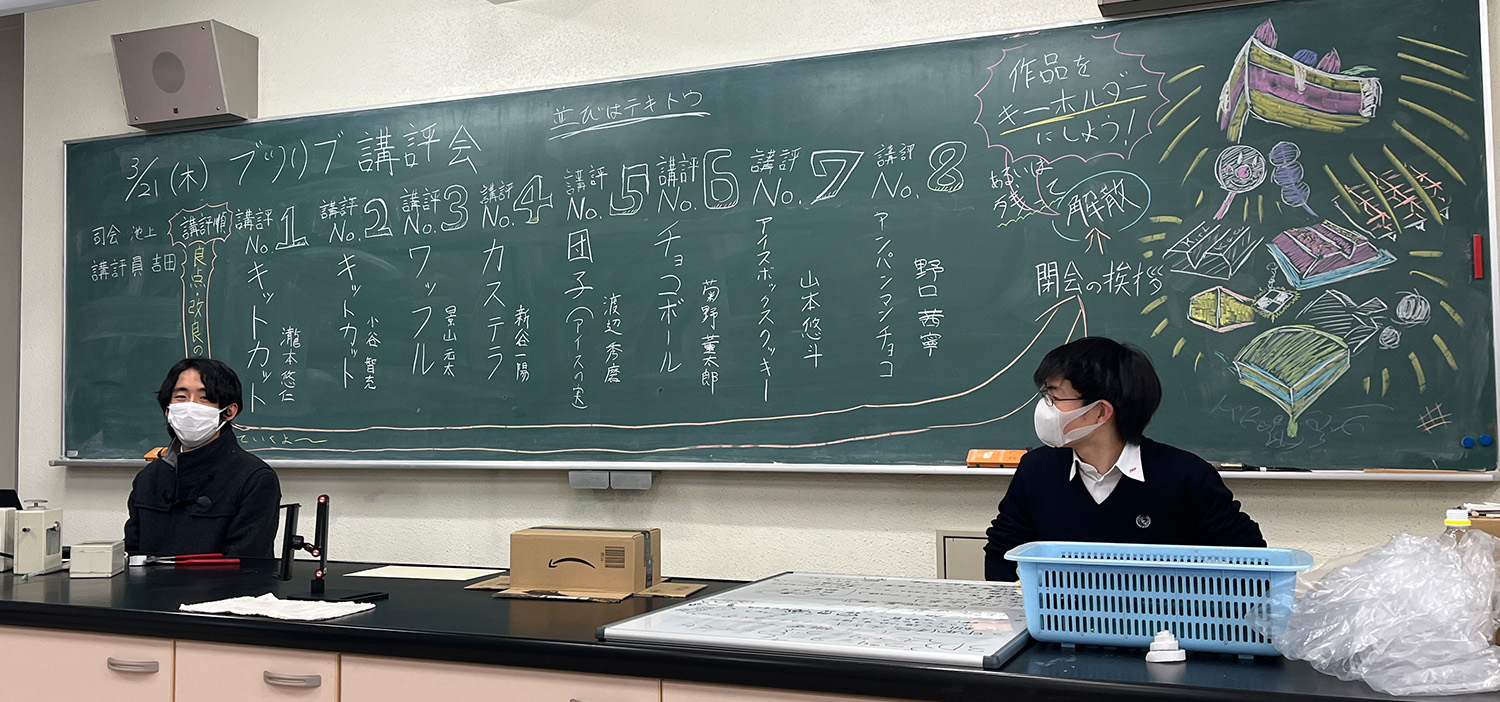 3/21(木) ブツリブ 講評会
並びはテキトウ
司会 池上
講評員 吉田
講評順
良点・改良の
講評 No.1
キットカット
瀧本悠仁
講評 No.2
キットカット
小谷智克
講評 No.3
ワッフル
景山元大
講評 No.4
カステラ
新谷一陽
講評 No.5
団子(アイスの実)
渡辺秀磨
講評 No.6
チョコボール
菊野薫太郎
講評 No.7
アイスボックスクッキー
山本悠斗
講評 No.8
アンパンマンチョコ
野口茜寧
ていくよ〜
閉会の挨拶
解散
あるいは
残って
作品を
キーホルダー
にしよう!